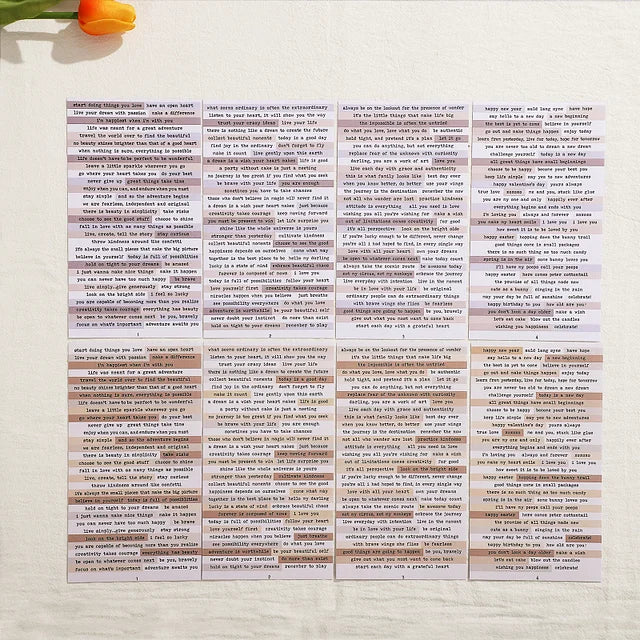 start doing things you love have an open heart
live your dream with passion make a difference
i'm happiest when i'm with you
life was meant for a great adventure
travel the world over to find the beautiful
no beauty shines brighter than that of a good heart
when nothing is sure, everything is possible
life doesn't have to be perfect to be wonderful
leave a little sparkle wherever you go
go where your heart takes you do your best
never give up great things take time
enjoy when you can, and endure when you must
stay simple and so the adventure begins
we are fearless, independent and original
there is beauty in simplicity take risks
choose to see the good stuff choose to shine
fall in love with as many things as possible
live, create, tell the story stay curious
throw kindness around like confetti
it's always the small pieces that make the big picture
believe in yourself today is full of possibilities
hold on tight to your dreams be amazed
i just wanna make nice things make it happen
you can never have too much happy be brave
stay simply.give generously stay strong
look on the bright side i feel so lucky
you are capable of becoming more than you realize
creativity takes courage everything has beauty
be open to whatever comes next be you, bravely
focus on what's important adventure awaits you
1
what seems ordinary is often the extraordinary
listen to your heart, it will show you the way
trust your crazy ideas live your life
there is nothing like a dream to create the future
collect beautiful moments today is a good day
find joy in the ordinary don't forget to fly
make it count live gently upon this earth
a dream is a wish your heart makes life is good
a party without cake is just a meeting
no journey is too great if you find what you seek
be brave with your life you are enough
sometimes you have to take chances
those who don't believe in magic will never find it
creativity takes courage keep moving forward
you must be present to win let life surprise you
shine like the whole universe is yours
stronger than yesterday cultivate kindness
collect beautiful moments choose to see the good
happiness depends on ourselves come what may
together is the best place to be hello my darling
lucky is a state of mind embrace beautiful chaos
forever is composed of nows i love you
today is full of possibilities follow your heart
love yourself first creativity takes courage
miracles happen when you believe just breathe
see possibility everywhere do what you love
adventure is worthwhile be your beautiful self
never doubt your instinct do more than exist
hold on tight to your dreams remember to play
2
always be on the lookout for the presence of wonder
it's the little things that make life big
the impossible is often the untried
do what you love, love what you do be authentic
hold tight, and pretend it's a plan let it go
you can do anything, but not everything
replace fear of the unknown with curiosity
darling, you are a work of art love you
live each day with grace and authenticity
this is what family looks like best day ever
when you know better, do better use your wings
the journey is the destination remember the now
not all who wander are lost practice kindness
attitude is everything all you need is love
wishing you all you're wishing for make a wish
out of limitations comes creativity for good
it's all perspective look on the bright side
if you're lucky enough to be different, never change
you're all i had hoped to find, in every single way
love with all your heart own your dreams
be open to whatever comes next make today count
always take the scenic route be awesome today
not my circus, not my monkeys embrace the journey
live everyday with intention live in the moment
be in love with your life be original
ordinary people can do extraordinary things
with brave wings she flies be fearless
good things are going to happen be you, bravely
give out what you most want to come back
start each day with a grateful heart
3
happy new year auld lang syne have hope
say hello to a new day a new beginning
the best is yet to come believe in yourself
go out and make things happen enjoy today
learn from yesterday, live for today, hope for tomorrow
you are never too old to dream a new dream
challenge yourself today is a new day
all great things have small beginnings
choose to be happy become your best you
be kind to people say yes to new adventures
happy valentine's day yours always
true love xoxoxo me and you, stuck like glue
you are my one and only happily ever after
everything begins and ends with you
i'm loving you always and forever xoxoxo
you make my heart smile i love you i love us
how sweet it is to be loved by you
happy easter hopping down the bunny trail
good things come in small packages
there is no such thing as too much candy
spring is in the air some bunny loves you
i'll have my peeps call your peeps
happy easter here comes peter cottontail
the promise of all things made new
cute as a bunny singing in the rain
may your day be full of sunshine celebrate
happy birthday to you how old are you?
you don't look a day older make a wish
let's eat cake blow out the candles
wishing you happiness celebrate!
4
start doing things you love have an open heart
live your dream with passion make a difference
i'm happiest when i'm with you
life was meant for a great adventure
travel the world over to find the beautiful
no beauty shines brighter than that of a good heart
when nothing is sure, everything is possible
life doesn't have to be perfect to be wonderful
leave a little sparkle wherever you go
go where your heart takes you do your best
never give up great things take time
enjoy when you can, and endure when you must
stay simple and so the adventure begins
we are fearless, independent and original
there is beauty in simplicity take risks
choose to see the good stuff choose to shine
fall in love with as many things as possible
live, create, tell the story stay curious
throw kindness around like confetti
it's always the small pieces that make the big picture
believe in yourself today is full of possibilities
hold on tight to your dreams be amazed
i just wanna make nice things make it happen
you can never have too much happy be brave
stay simply.give generously stay strong
look on the bright side i feel so lucky
you are capable of becoming more than you realize
creativity takes courage everything has beauty
be open to whatever comes next be you, bravely
focus on what's important adventure awaits you
1
what seems ordinary is often the extraordinary
listen to your heart, it will show you the way
trust your crazy ideas live your life
there is nothing like a dream to create the future
collect beautiful moments today is a good day
find joy in the ordinary don't forget to fly
make it count live gently upon this earth
a dream is a wish your heart makes life is good
a party without cake is just a meeting
no journey is too great if you find what you seek
be brave with your life you are enough
sometimes you have to take chances
those who don't believe in magic will never find it
creativity takes courage keep moving forward
you must be present to win let life surprise you
shine like the whole universe is yours
stronger than yesterday cultivate kindness
collect beautiful moments choose to see the good
happiness depends on ourselves come what may
together is the best place to be hello my darling
lucky is a state of mind embrace beautiful chaos
forever is composed of nows i love you
today is full of possibilities follow your heart
love yourself first creativity takes courage
miracles happen when you believe just breathe
see possibility everywhere do what you love
adventure is worthwhile be your beautiful self
never doubt your instinct do more than exist
hold on tight to your dreams remember to play
2
always be on the lookout for the presence of wonder
it's the little things that make life big
the impossible is often the untried
do what you love, love what you do be authentic
hold tight, and pretend it's a plan let it go
you can do anything, but not everything
replace fear of the unknown with curiosity
darling, you are a work of art love you
live each day with grace and authenticity
this is what family looks like best day ever
when you know better, do better use your wings
the journey is the destination remember the now
not all who wander are lost practice kindness
attitude is everything all you need is love
wishing you all you're wishing for make a wish
out of limitations comes creativity for good
it's all perspective look on the bright side
if you're lucky enough to be different, never change
you're all i had hoped to find, in every single way
love with all your heart own your dreams
be open to whatever comes next make today count
always take the scenic route be awesome today
not my circus, not my monkeys embrace the journey
live everyday with intention live in the moment
be in love with your life be original
ordinary people can do extraordinary things
with brave wings she flies be fearless
good things are going to happen be you, bravely
give out what you most want to come back
start each day with a grateful heart
3
happy new year auld lang syne have hope
say hello to a new day a new beginning
the best is yet to come believe in yourself
go out and make things happen enjoy today
learn from yesterday, live for today, hope for tomorrow
you are never too old to dream a new dream
challenge yourself today is a new day
all great things have small beginnings
choose to be happy become your best you
be kind to people say yes to new adventures
happy valentine's day yours always
true love xoxoxo me and you, stuck like glue
you are my one and only happily ever after
everything begins and ends with you
i'm loving you always and forever xoxoxo
you make my heart smile i love you i love us
how sweet it is to be loved by you
happy easter hopping down the bunny trail
good things come in small packages
there is no such thing as too much candy
spring is in the air some bunny loves you
i'll have my peeps call your peeps
happy easter here comes peter cottontail
the promise of all things made new
cute as a bunny singing in the rain
may your day be full of sunshine celebrate
happy birthday to you how old are you?
you don't look a day older make a wish
let's eat cake blow out the candles
wishing you happiness celebrate!
4